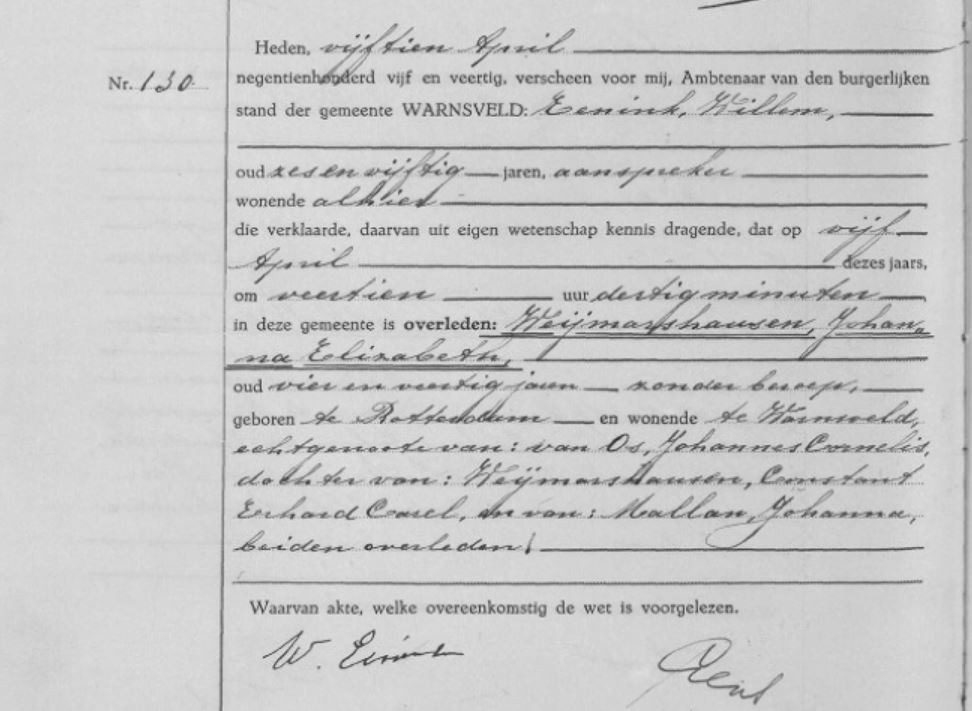 Heden, vijftien April
Nr. 130
negentienhonderd vijf en veertig, verscheen voor mij, Ambtenaar van den burgerlijken
stand der gemeente WARNSVELD: Eenink, Willem,
oud zes en vijftig jaren, aanspreker
wonende alhier
die verklaarde, daarvan uit eigen wetenschap kennis dragende, dat op vijf
April dezes jaars,
om veertien uur dertig minuten
in deze gemeente is overleden: Weijmarshausen, Johan-
na Elizabeth,
oud vier en veertig jaren zonder beroep,
geboren te Rotterdam en wonende te Warnsveld,
echtgenoote van: van Os, Johannes Cornelis,
dochter van: Weijmarshausen, Constant
Erhard Carel, en van: Mallan, Johanna,
beiden overleden.
Waarvan akte, welke overeenkomstig de wet is voorgelezen.
W. Eenink